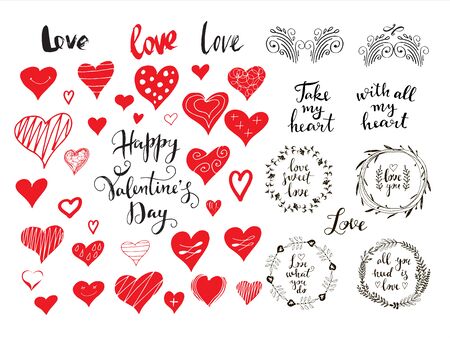 Love love love
Take
my
heart
with all
my
heart
Happy
Valentine's
Day
love sweet
love
love
you
Love
Love
what you
do
all you
need is
love